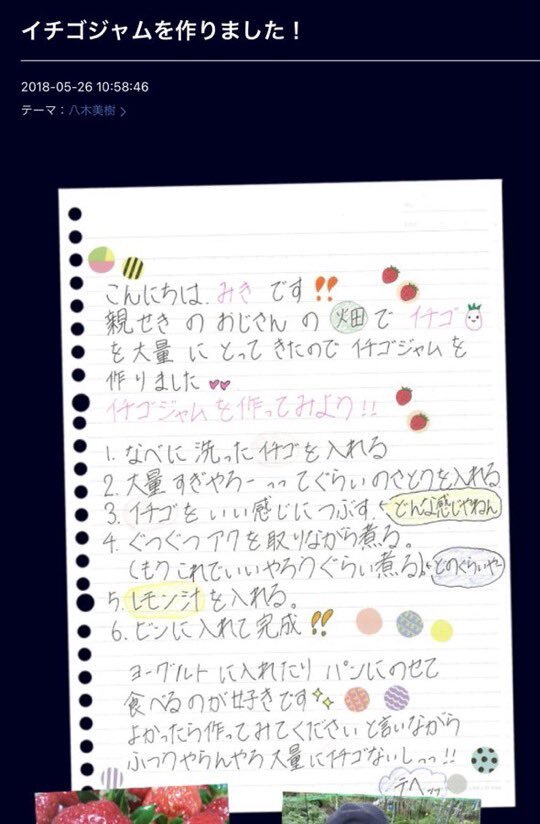 イチゴジャムを作りました！
2018-05-26 10:58:46
テーマ：八木美樹
こんにちは、みき です!!
親せき の おじさん の 畑 で イチゴ
を 大量 に とって きたので イチゴジャム を
作りました
イチゴジャム を 作って みよう!!
1. なべに 洗った イチゴ を 入れる
2. 大量 すぎやろーっってぐらい の さとう を 入れる
3. イチゴ を いい感じに つぶす。 どんな感じやねん
4. ぐつぐつ アク を 取り ながら 煮る。
(もう これで いいやろう ぐらい 煮る) どのぐらいやー
5. レモン汁 を 入れる。
6. ビンに 入れて 完成 !!
ヨーグルト に 入れたり パン に のせて
食べる の が 好き です
よかったら 作って みて ください と 言い ながら
ふつう やらんやろ 大量に イチゴ ないしっっ!!
テヘッッ